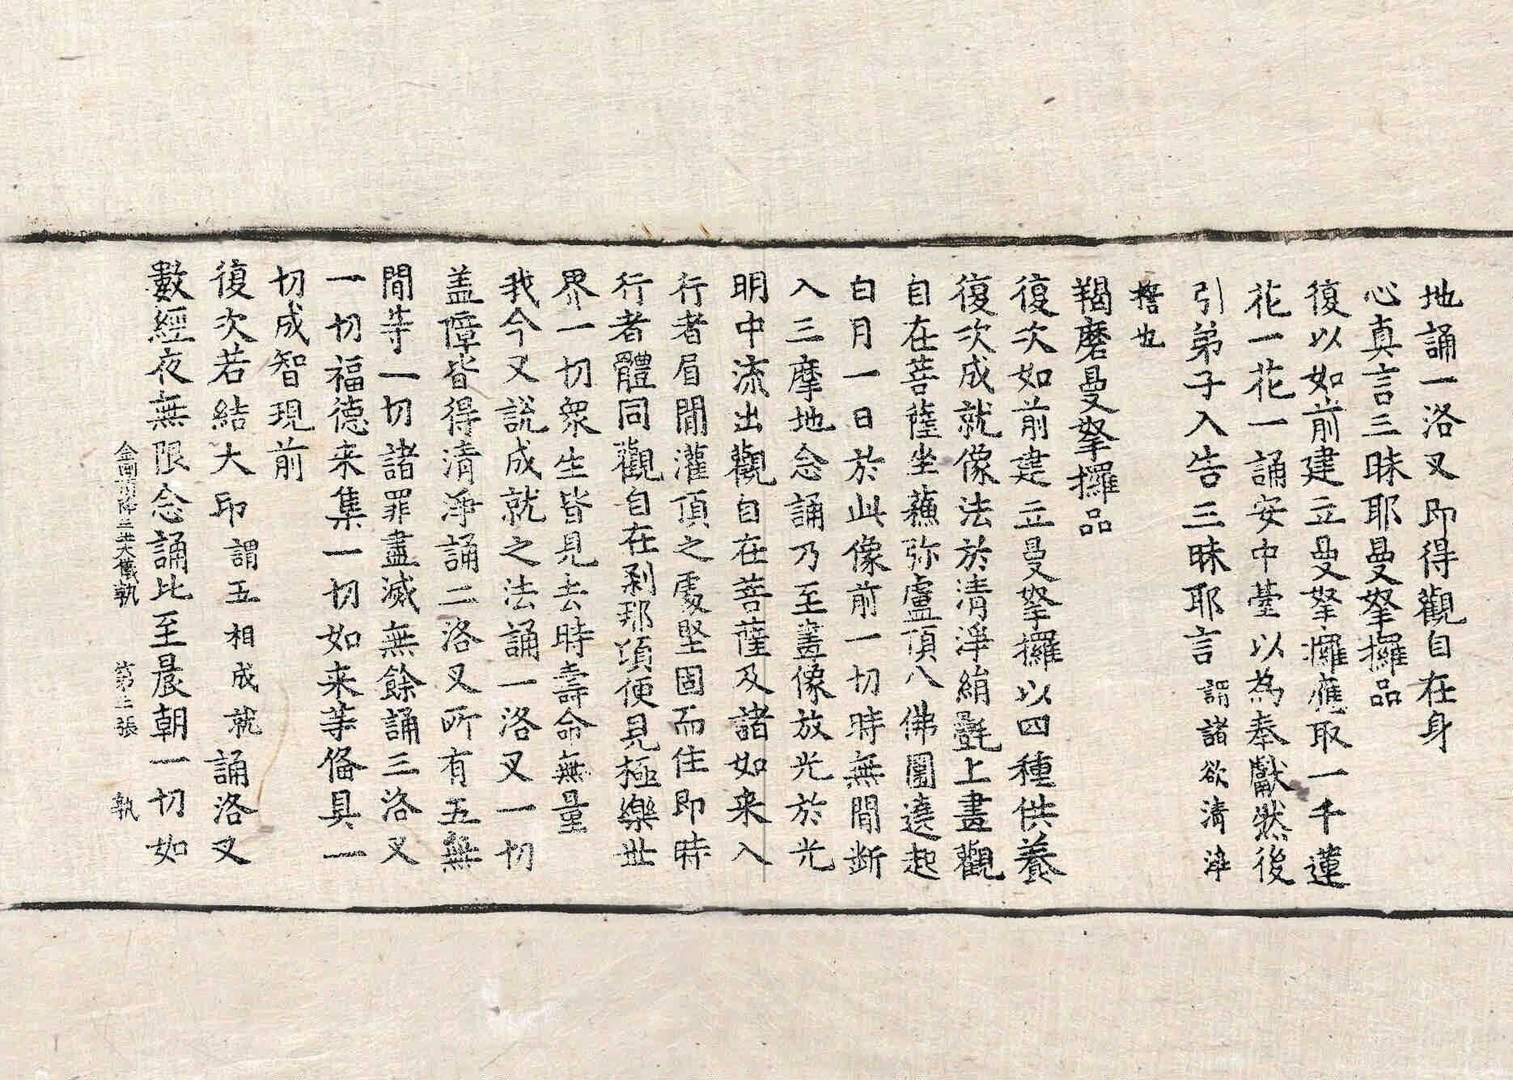 地誦一洛叉即得觀自在身
心真言三昧耶曼拏攞品
復以如前建立曼拏攞應取一千蓮
花一花一誦安中臺以為奉獻然後
引弟子入告三昧耶言謂諸欲清淨
等也
羯磨曼拏攞品
復次如前建立曼拏攞以四種供養
復次成就像法於清淨絹㲲上畫觀
自在菩薩坐蘇弥盧頂八佛圍遶起
白月一日於此像前一切時無間斷
入三摩地念誦乃至畫像放光於光
明中流出觀自在菩薩及諸如来入
行者眉間灌頂之處堅固而住即時
行者體同觀自在剎那頃便見極樂世
界一切衆生皆見去時壽命無量
我今又說成就之法誦一洛叉一切
盖障皆得清淨誦二洛叉所有五無
間等一切諸罪盡滅無餘誦三洛叉
一切福德来集一切如来等俻具一
切成智現前
復次若結大印謂五相成就誦洛叉
數經夜無限念誦比至晨朝一切如
金剛頂降三世大儀執 第三張 執